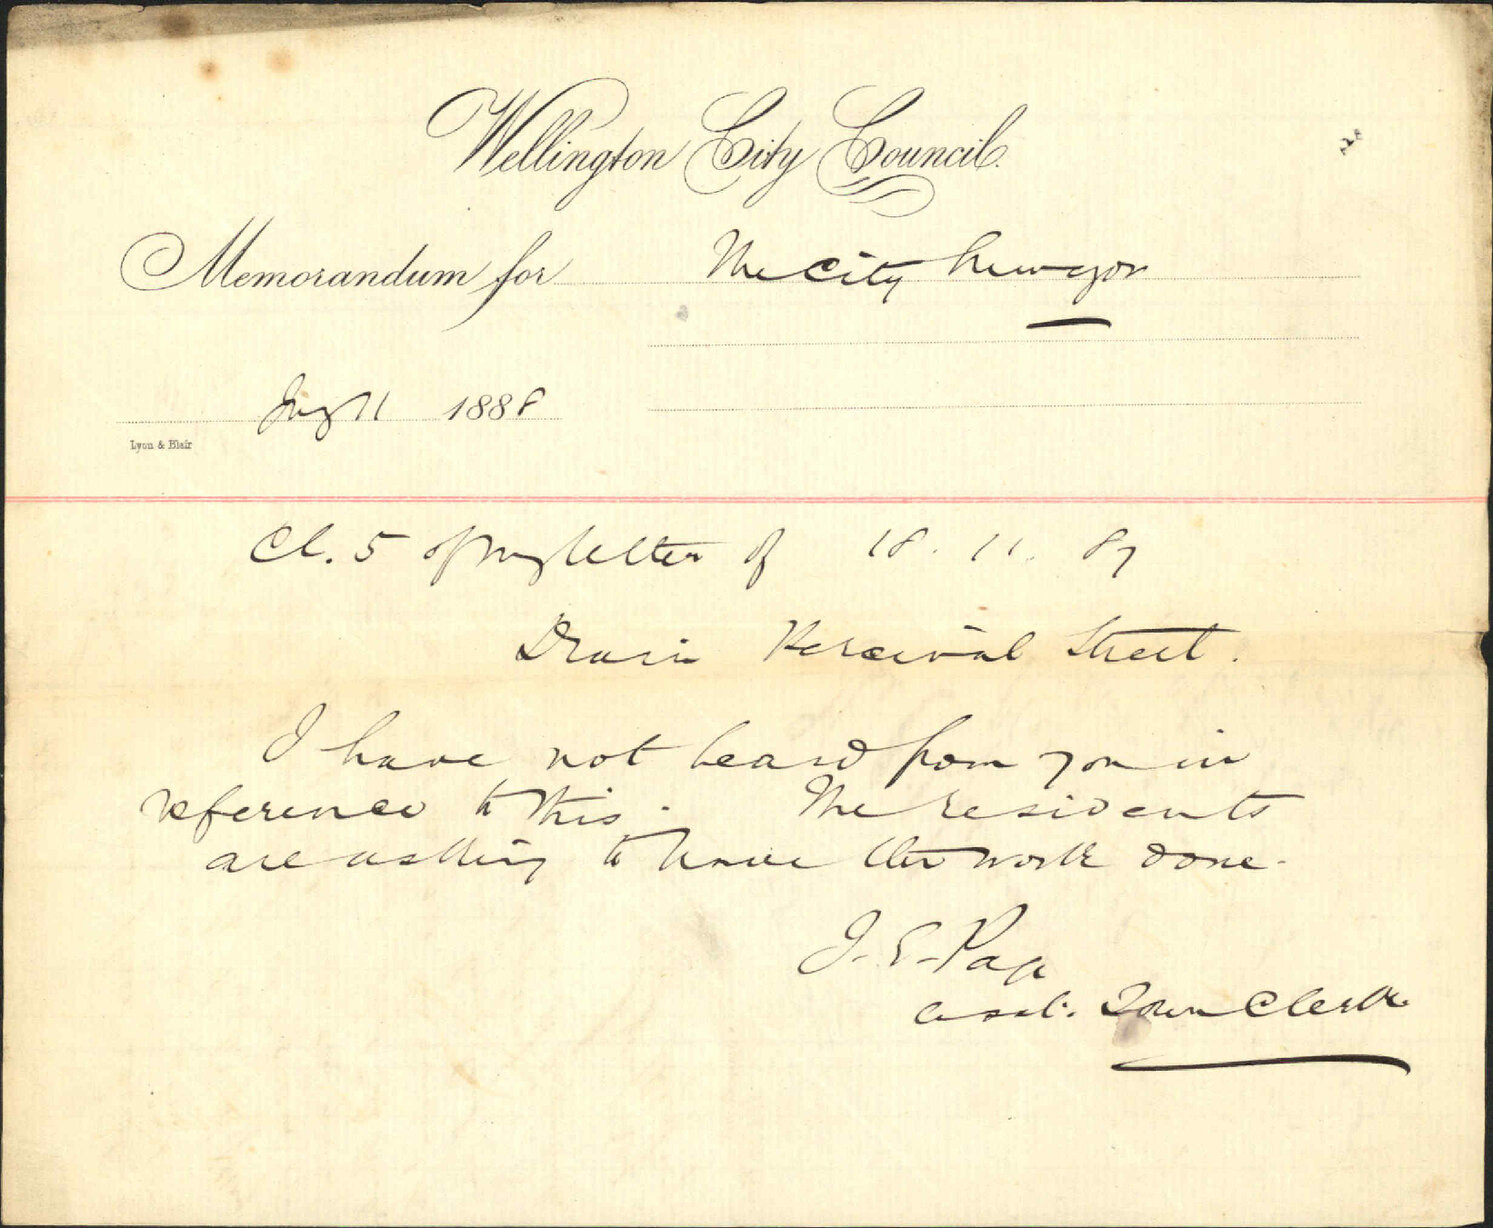 Wellington City Council.
Memorandum for The City Surveyor
Jany 11 1888
Lyon & Blair
Cl. 5 of my letter of 18. 11. 87
Drain Percival Street.
I have not heard from you in
reference to this. The residents
are asking to have the work done.
J. E. Page
asst. Town Clerk